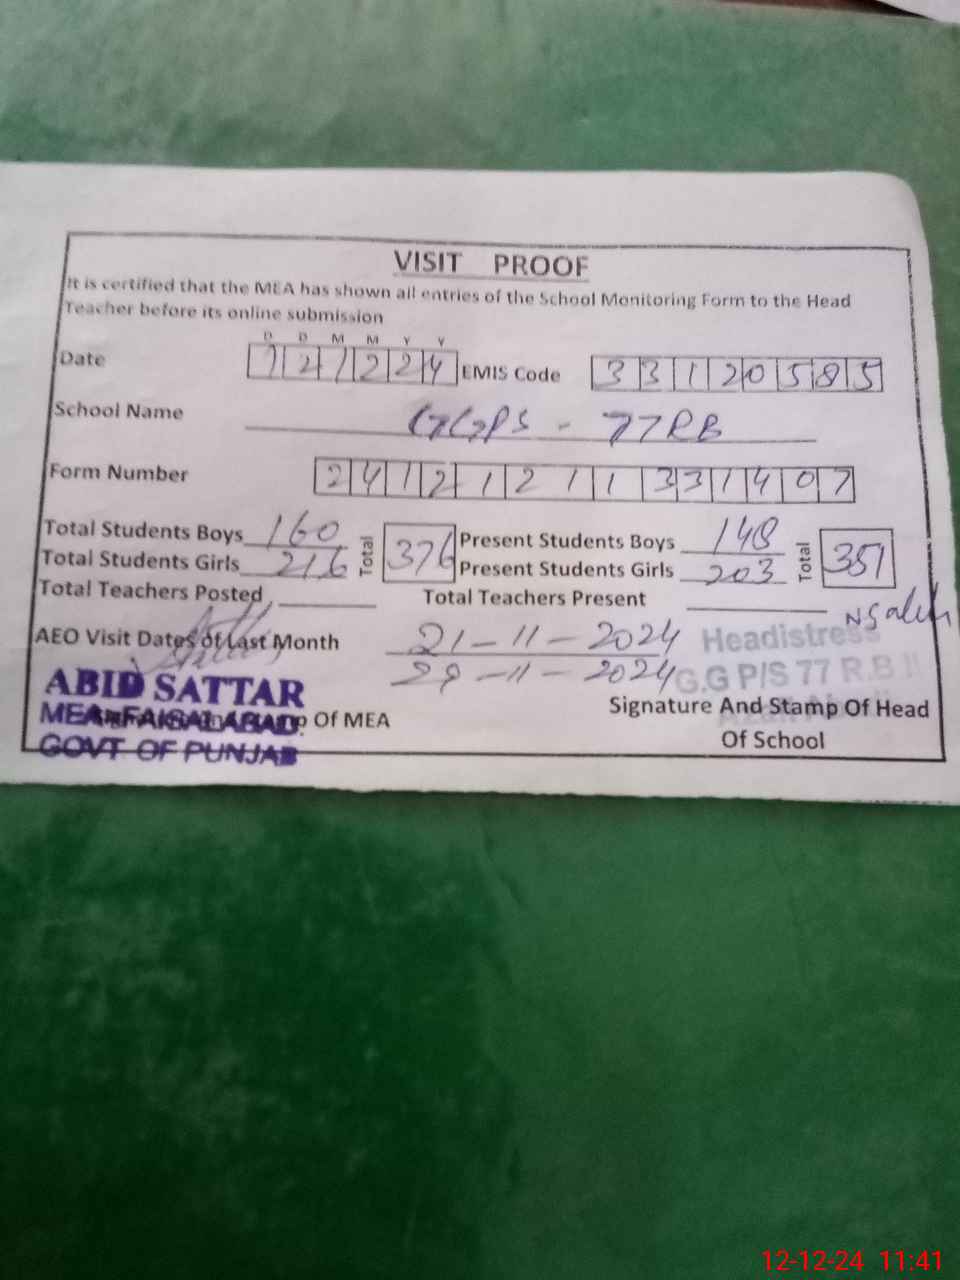 VISIT PROOF
It is certified that the MEA has shown all entries of the School Monitoring Form to the Head
Teacher before its online submission
D D M M Y Y
Date 1 2 1 2 2 4 EMIS Code 3 3 1 2 0 5 8 5
School Name GGPS - 77RB
Form Number 2 4 1 2 1 2 1 1 3 3 1 4 0 7
Total Students Boys 160 Total 376 Present Students Boys 148 Total 351
Total Students Girls 216 Present Students Girls 203
Total Teachers Posted Total Teachers Present
NSaleh
AEO Visit Dates of Last Month 21-11-2024
29-11-2024
Headistress
G.G P/S 77 R.B
ABID SATTAR
MEA FAISALABAD.
GOVT OF PUNJAB
Of MEA
Signature And Stamp Of Head
Of School
12-12-24 11:41